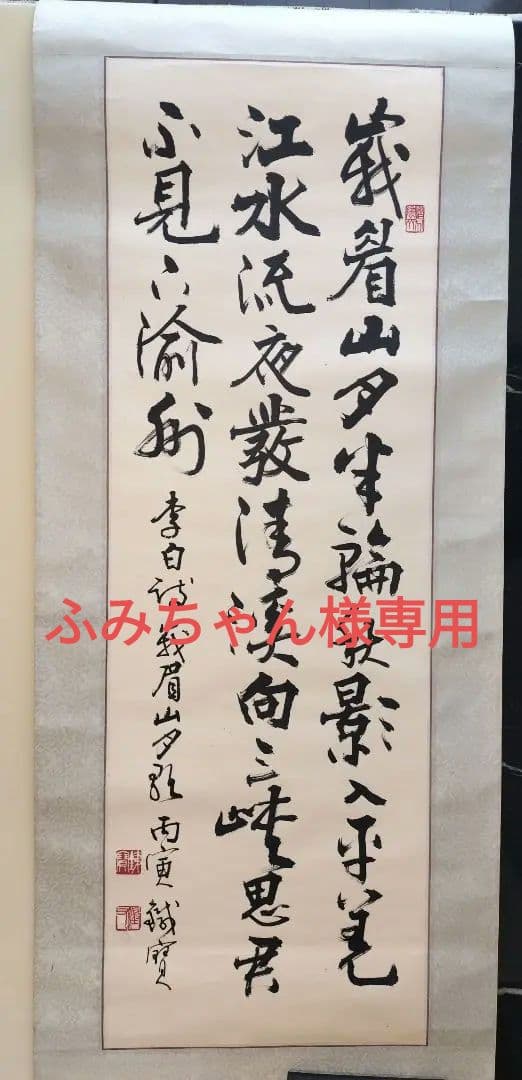 峩眉山月半輪秋影入平羌
江水流夜發清溪向三峽思君
不見下渝州
李白詩峩眉山月歌 丙寅 鐵寶
ふみちゃん様専用